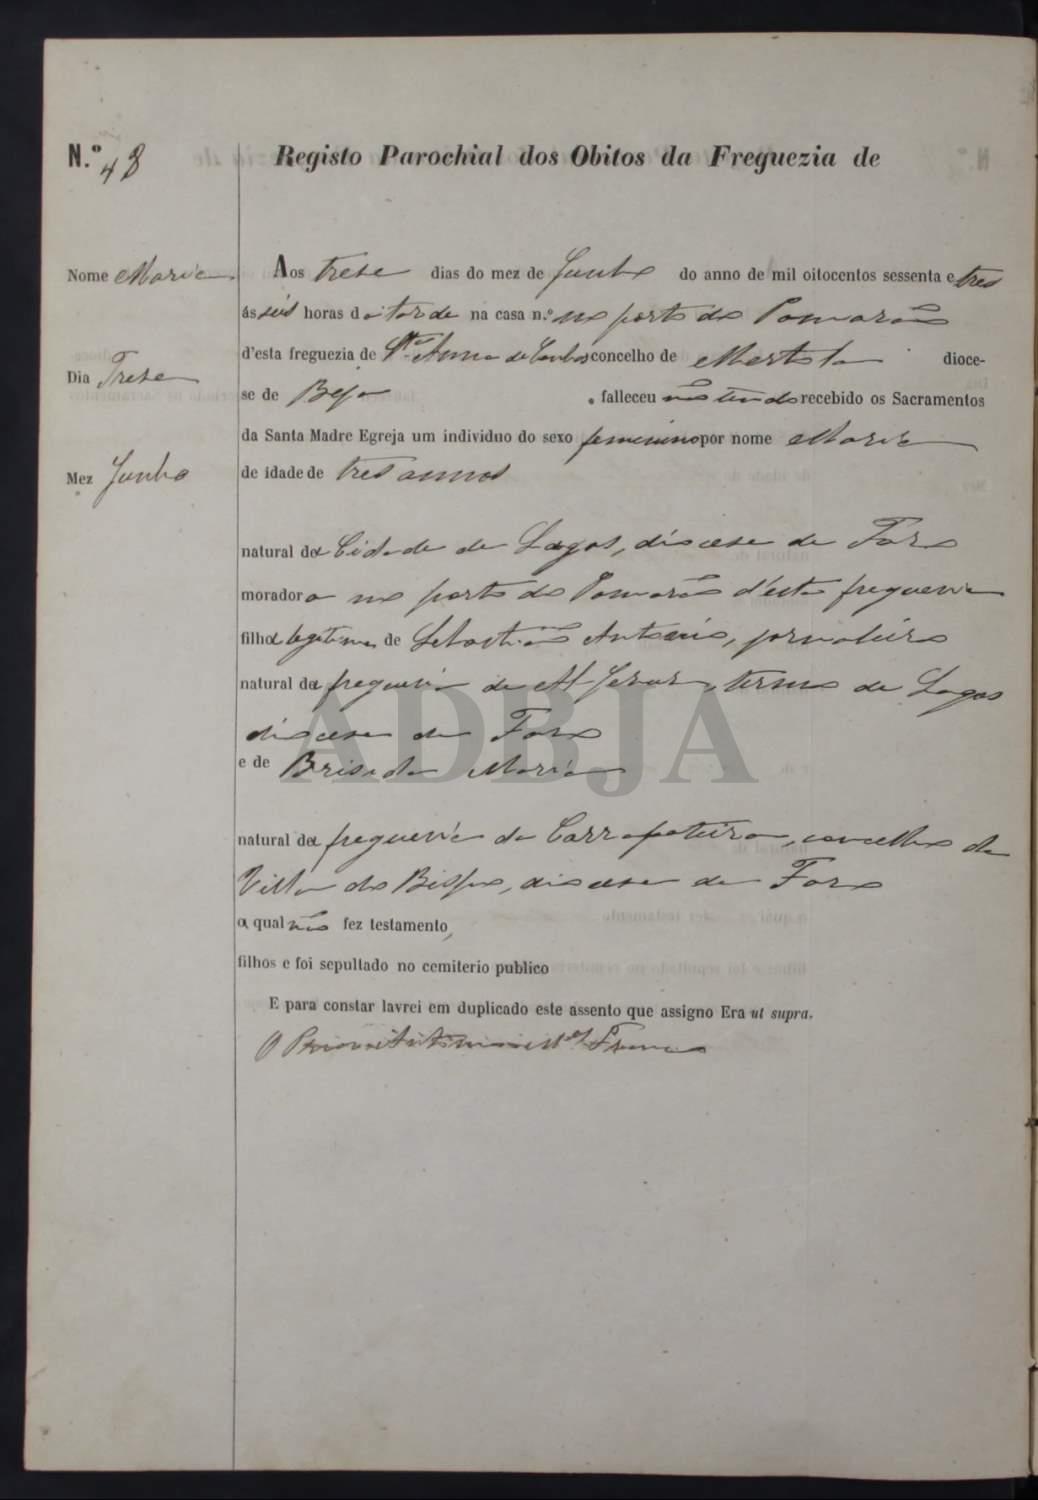 N.º 48
Registo Parochial dos Obitos da Freguezia de
Nome Maria
Aos trese dias do mez de Junho do anno de mil oitocentos sessenta e tres
ás seis horas da tarde na casa n.º no porto do Pomarão
d'esta freguezia de Stª Anna de Cambas concelho de Mertola dioce-
Dia Trese
se de Beja. falleceu não tendo recebido os Sacramentos
da Santa Madre Egreja um individuo do sexo femenino por nome Maria
Mez Junho
de idade de tres annos
natural da Cidade de Lagos, diocese de Faro
moradora no porto do Pomarão d'esta freguesia
filha legitima de Sebastião Antonio, jornaleiro
natural da freguesia de Aljesur, termo de Lagos
diocese de Faro
e de Brisida Maria
natural da freguesia da Carrapateira, concelho da
Villa do Bispo, diocese de Faro
a qual não fez testamento,
filhos e foi sepultado no cemiterio publico
E para constar lavrei em duplicado este assento que assigno Era ut supra.
O Prior
ADBJA